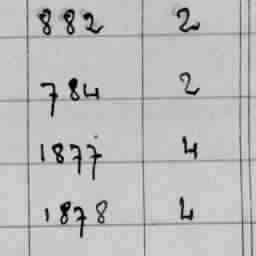 882 2
784 2
1877 4
1878 4